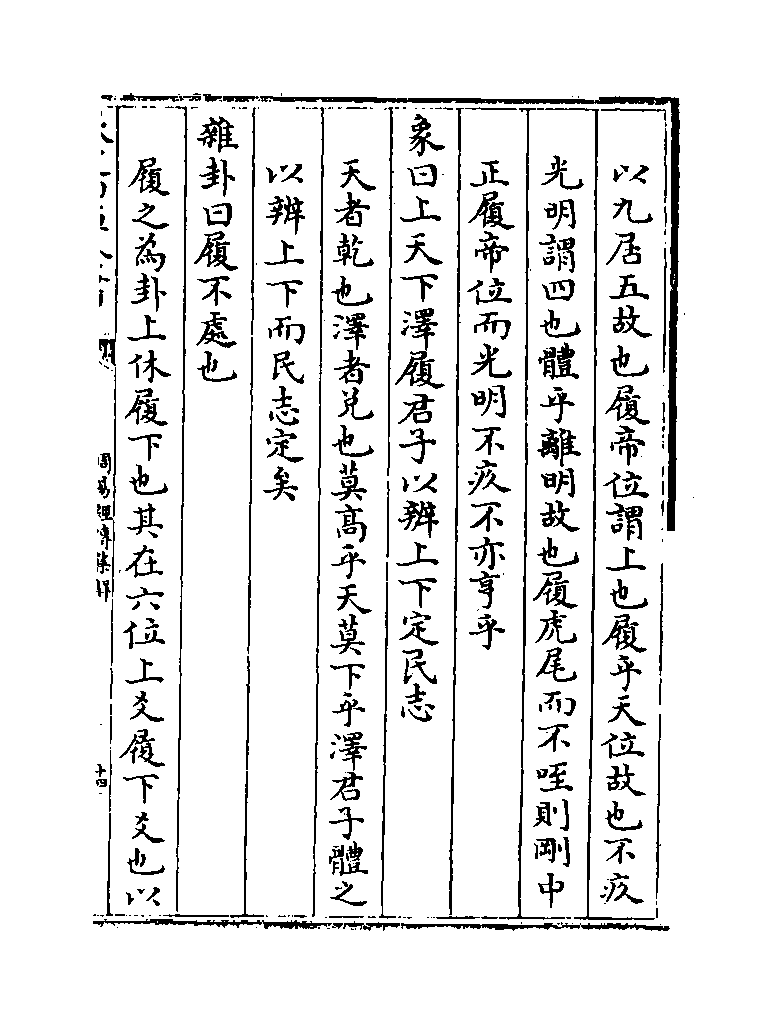 以九居五故也履帝位謂上也履乎天位故也不疚
光明謂四也體乎離明故也履虎尾而不咥則剛中
正履帝位而光明不疚不亦亨乎
象曰上天下澤履君子以辨上下定民志
天者乾也澤者兌也莫髙乎天莫下乎澤君子體之
以辨上下而民志定矣
雜卦曰履不處也
履之為卦上休履下也其在六位上爻履下爻也以
周易經傳集解
十四